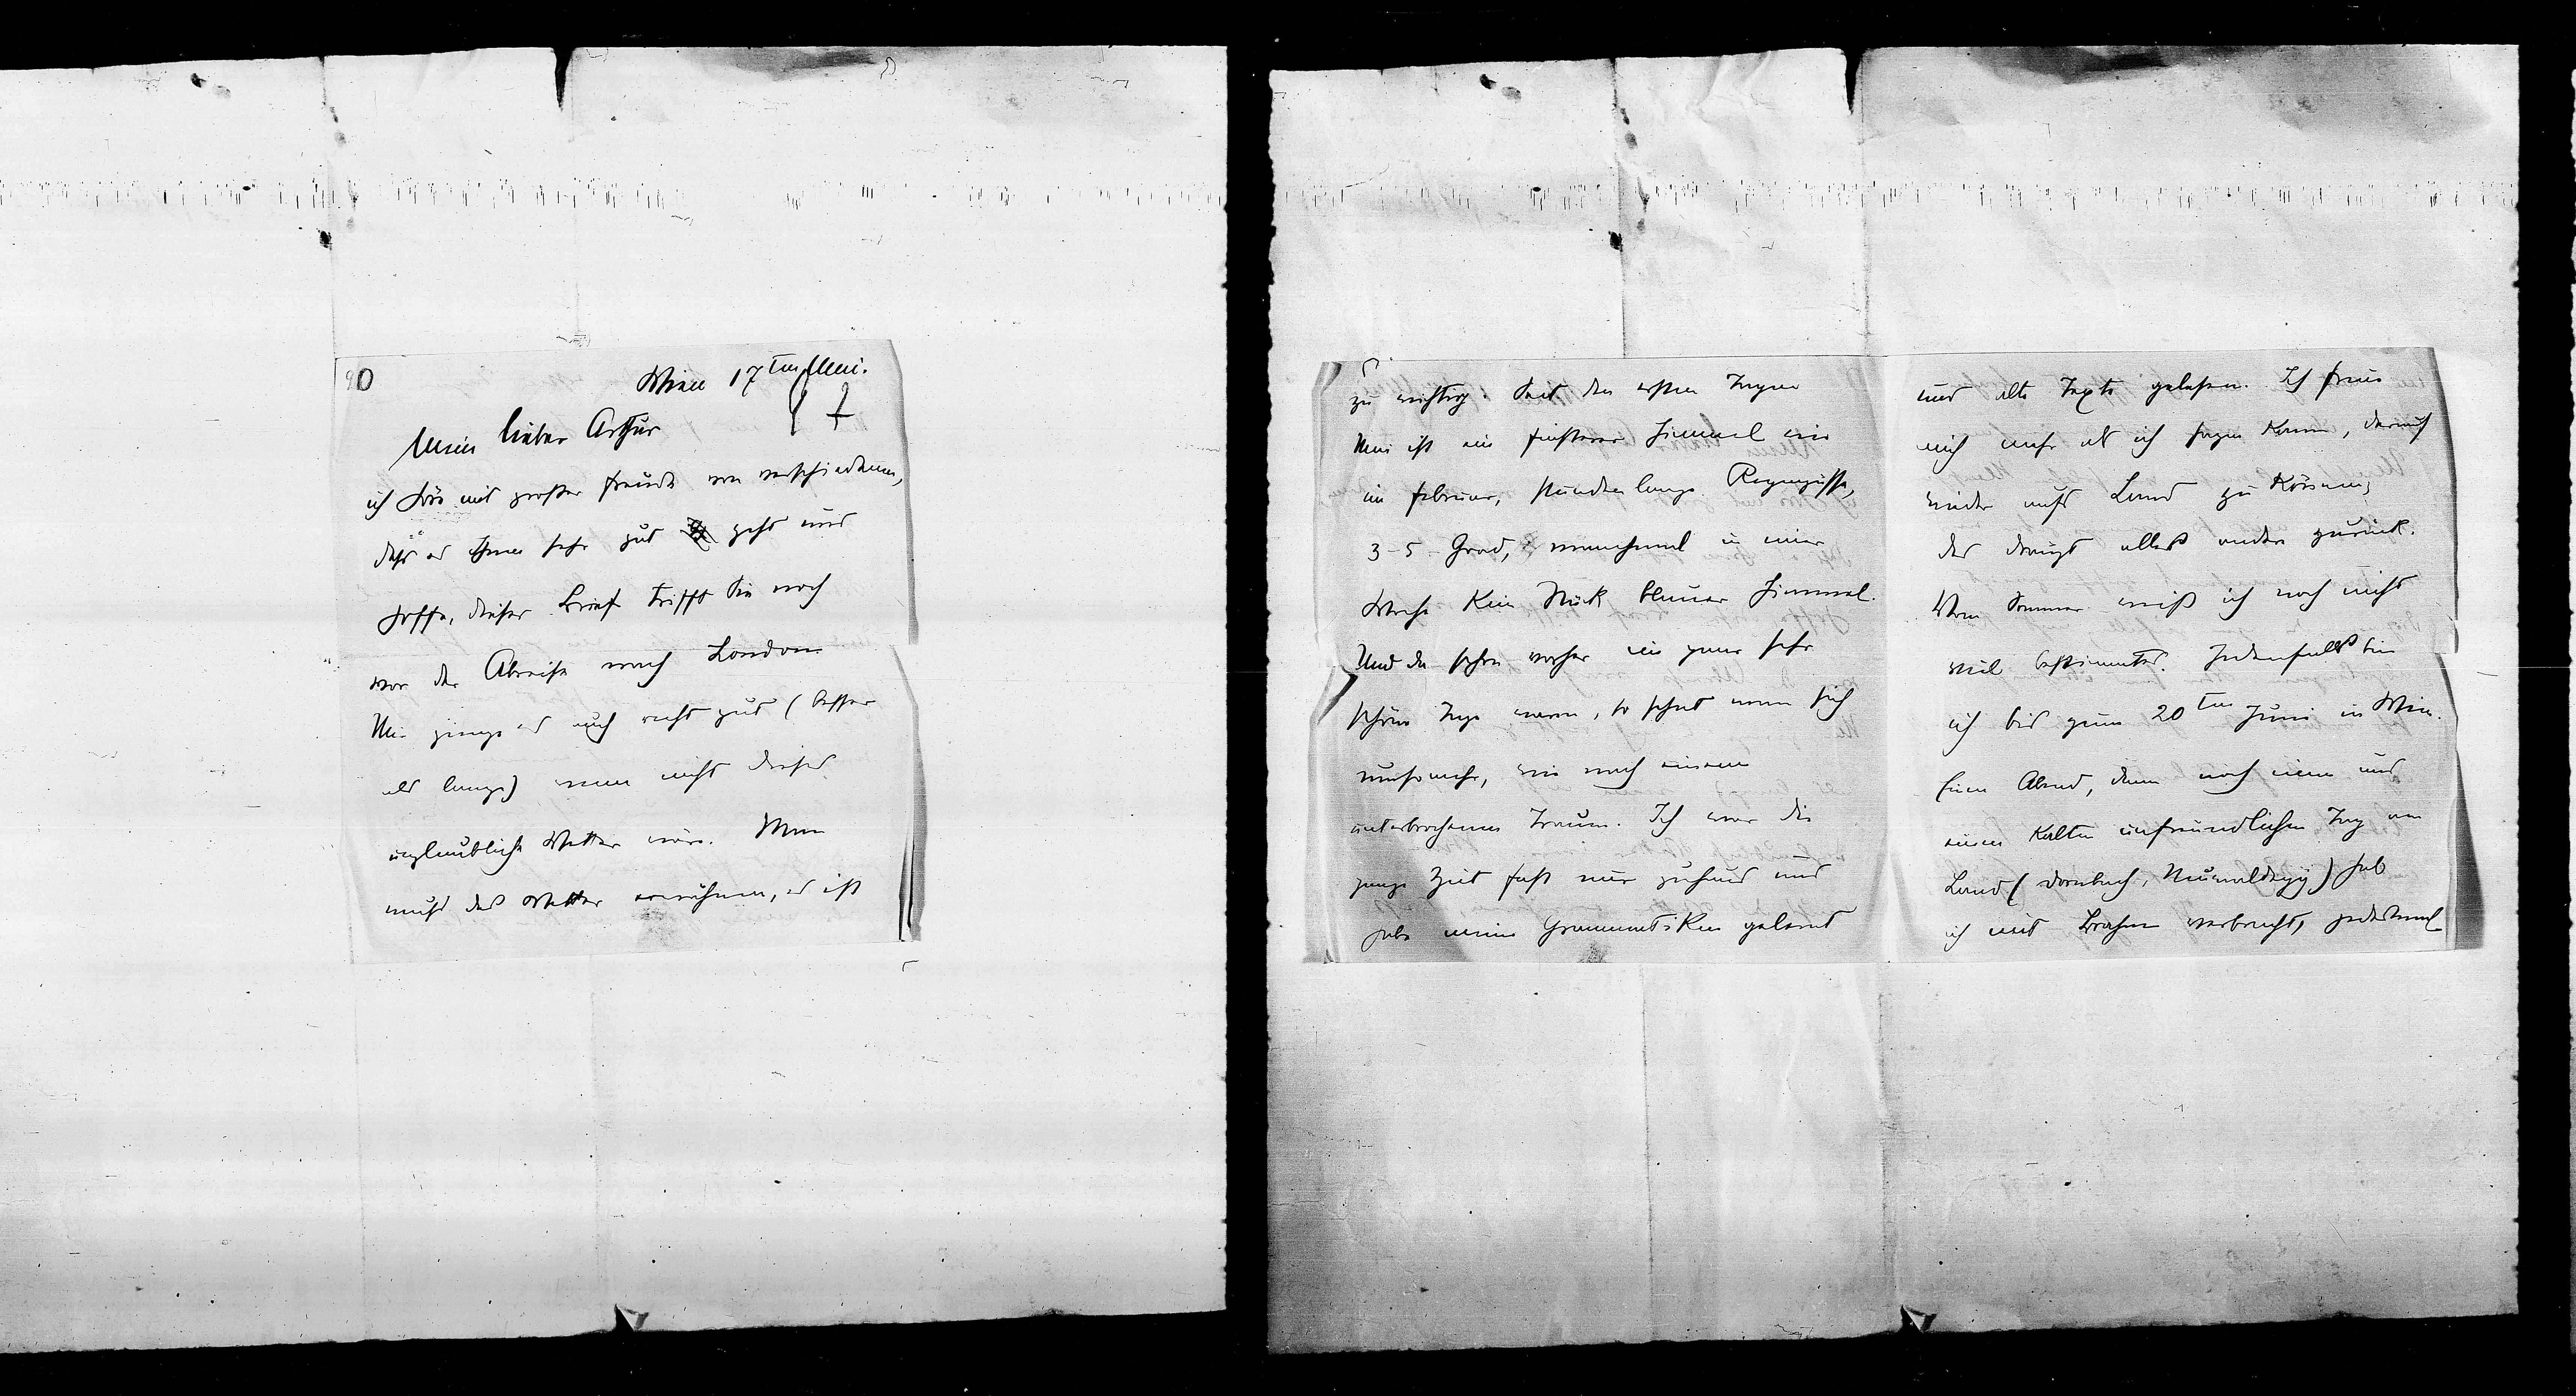 90
Wien 17ten Mai.
97
Mein lieber Arthur
ich hör mit großer Freude von verschiedenen,
dass es Ihnen sehr gut geht und
hoffe, dieser Brief trifft Sie noch
vor der Abreise nach London
Mir gienge es auch recht gut (besser
als lange) wenn nicht dieses
unglaubliche Wetter wäre. Man
muss das Wetter erwähnen, es ist
zu wichtig. Seit den ersten Tagen
Mai ist ein finsterer Himmel wie
im Februar, stundenlange Regengüsse,
3-5 Grad, manchmal in einer
Woche kein Stück blauer Himmel.
Und da schon vorher ein paar sehr
schöne Tage waren, so sehnt man sich
umsomehr, wie nach einem
unterbrochenen Traum. Ich war die
ganze Zeit fast nur zuhaus und
habe meine Grammatiken gelernt
und alte Texte gelesen. Ich freue
mich mehr als ich sagen kann, darauf
wieder aufs Land zu können,
das drängt alles andere zurück.
Vom Sommer weiß ich noch nicht
viel bestimmtes. Jedenfalls bin
ich bis zum 20ten Juni in Wien.
Einen Abend, dann noch einen und
einen kalten unfreundlichen Tag am
Land (Dornbach, Neuwaldegg) hab
ich mit Brahm verbracht, jedesmal